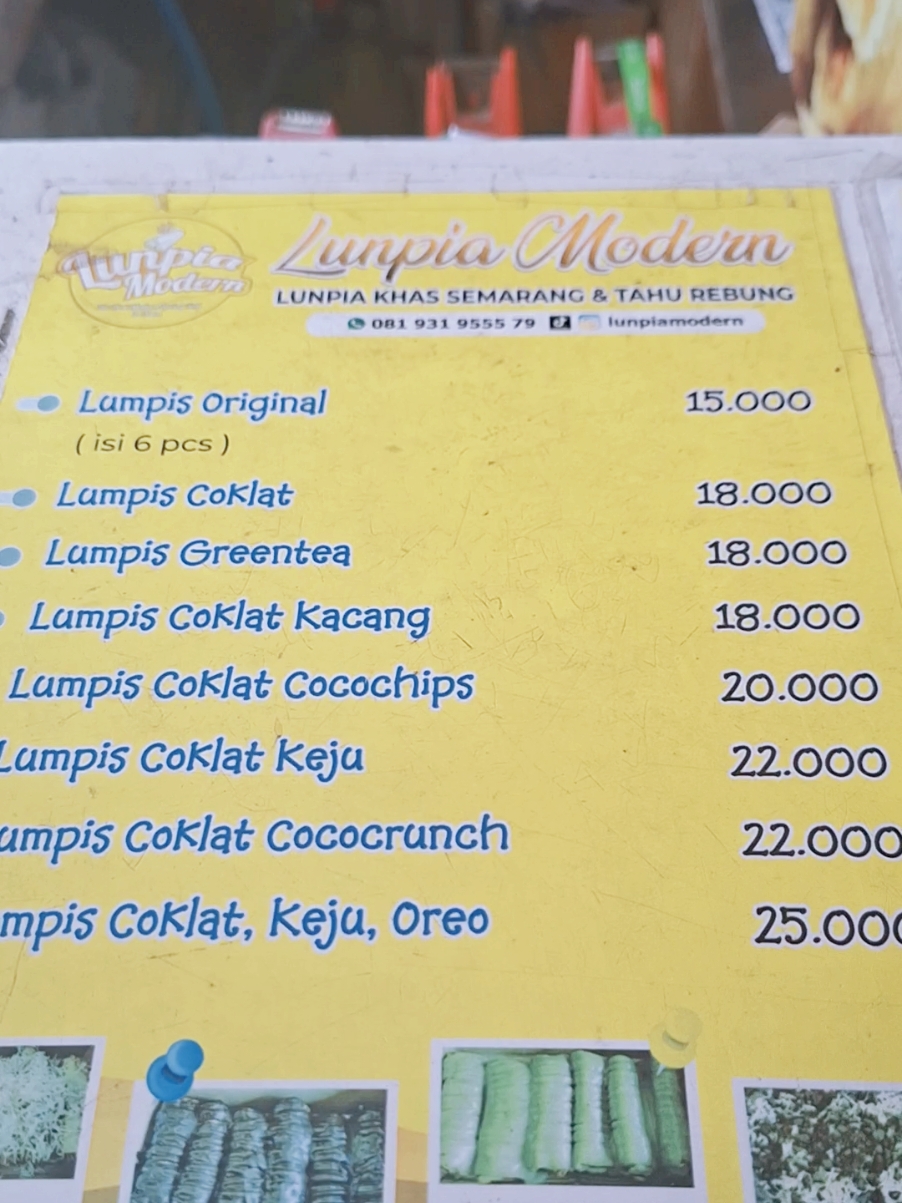 Lunpia Modern
Lunpia Modern
LUNPIA KHAS SEMARANG & TAHU REBUNG
081 931 9555 79 lunpiamodern
Lumpis Original 15.000
( isi 6 pcs )
Lumpis Coklat 18.000
Lumpis Greentea 18.000
Lumpis Coklat Kacang 18.000
Lumpis Coklat Cocochips 20.000
Lumpis Coklat Keju 22.000
umpis Coklat Cococrunch 22.000
mpis Coklat, Keju, Oreo 25.000